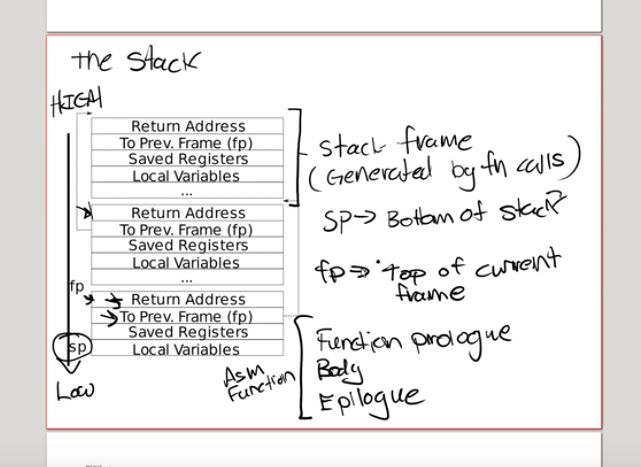 the Stack
HIGH
Return Address
To Prev. Frame (fp)
Saved Registers
Local Variables
...
Return Address
To Prev. Frame (fp)
Saved Registers
Local Variables
...
fp
Return Address
To Prev. Frame (fp)
Saved Registers
sp
Local Variables
Low
Stack frame
(Generated by fn calls)
SP→ Bottom of stack
fp⇒ Top of current
frame
Asm
Function
Function prologue
Body
Epilogue